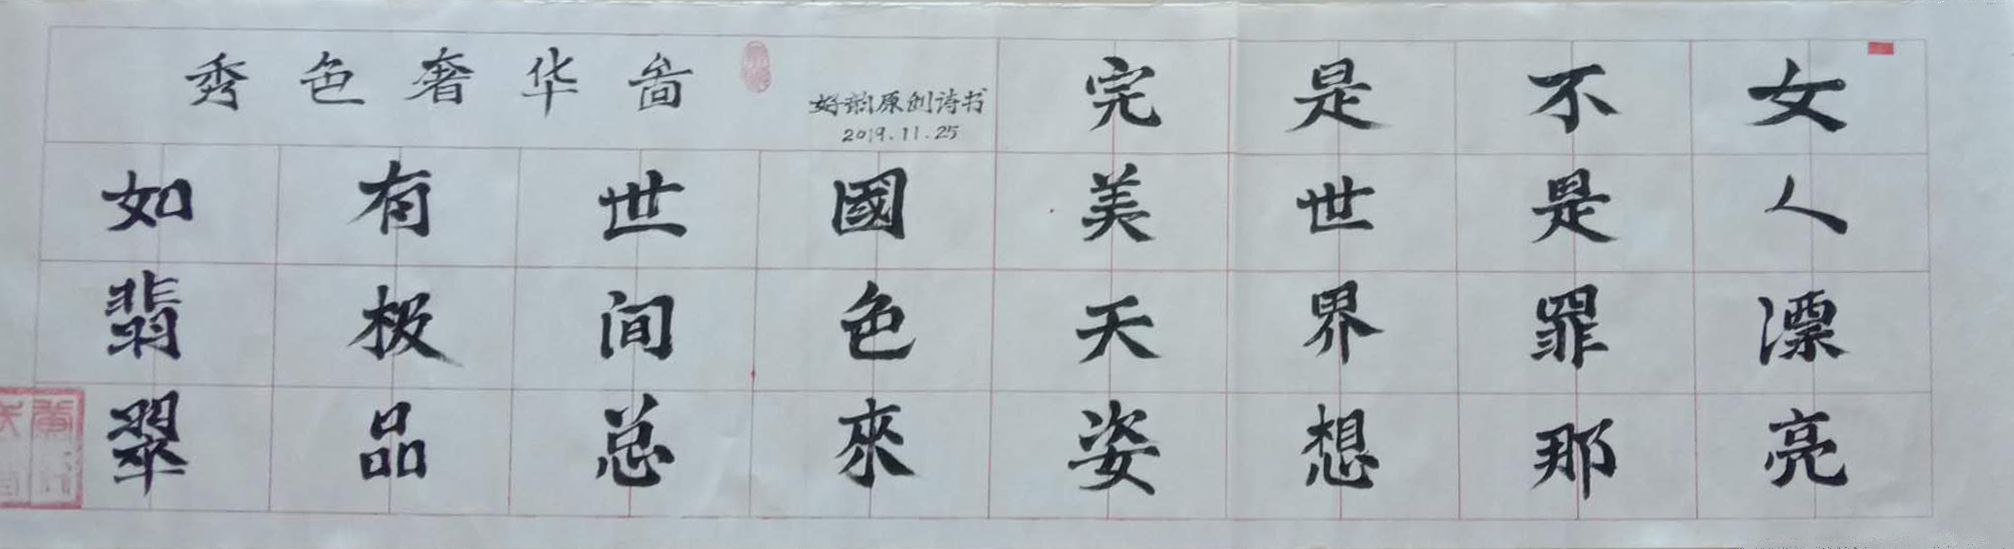 女人漂亮
不是罪那
是世界想
完美天姿
國色來
世间总
有极品
如翡翠
秀色奢华
好韵原创诗书
2019.11.25